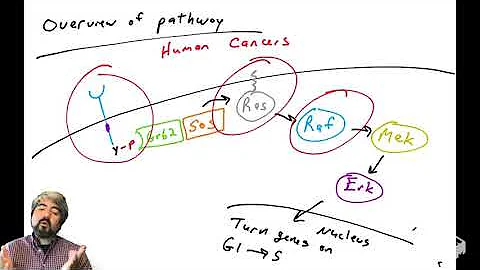 Overview of pathway
Human Cancers
Y-P Grb2 Sos Ras Raf Mek
Erk
Nucleus
Turn genes on
G1 → S